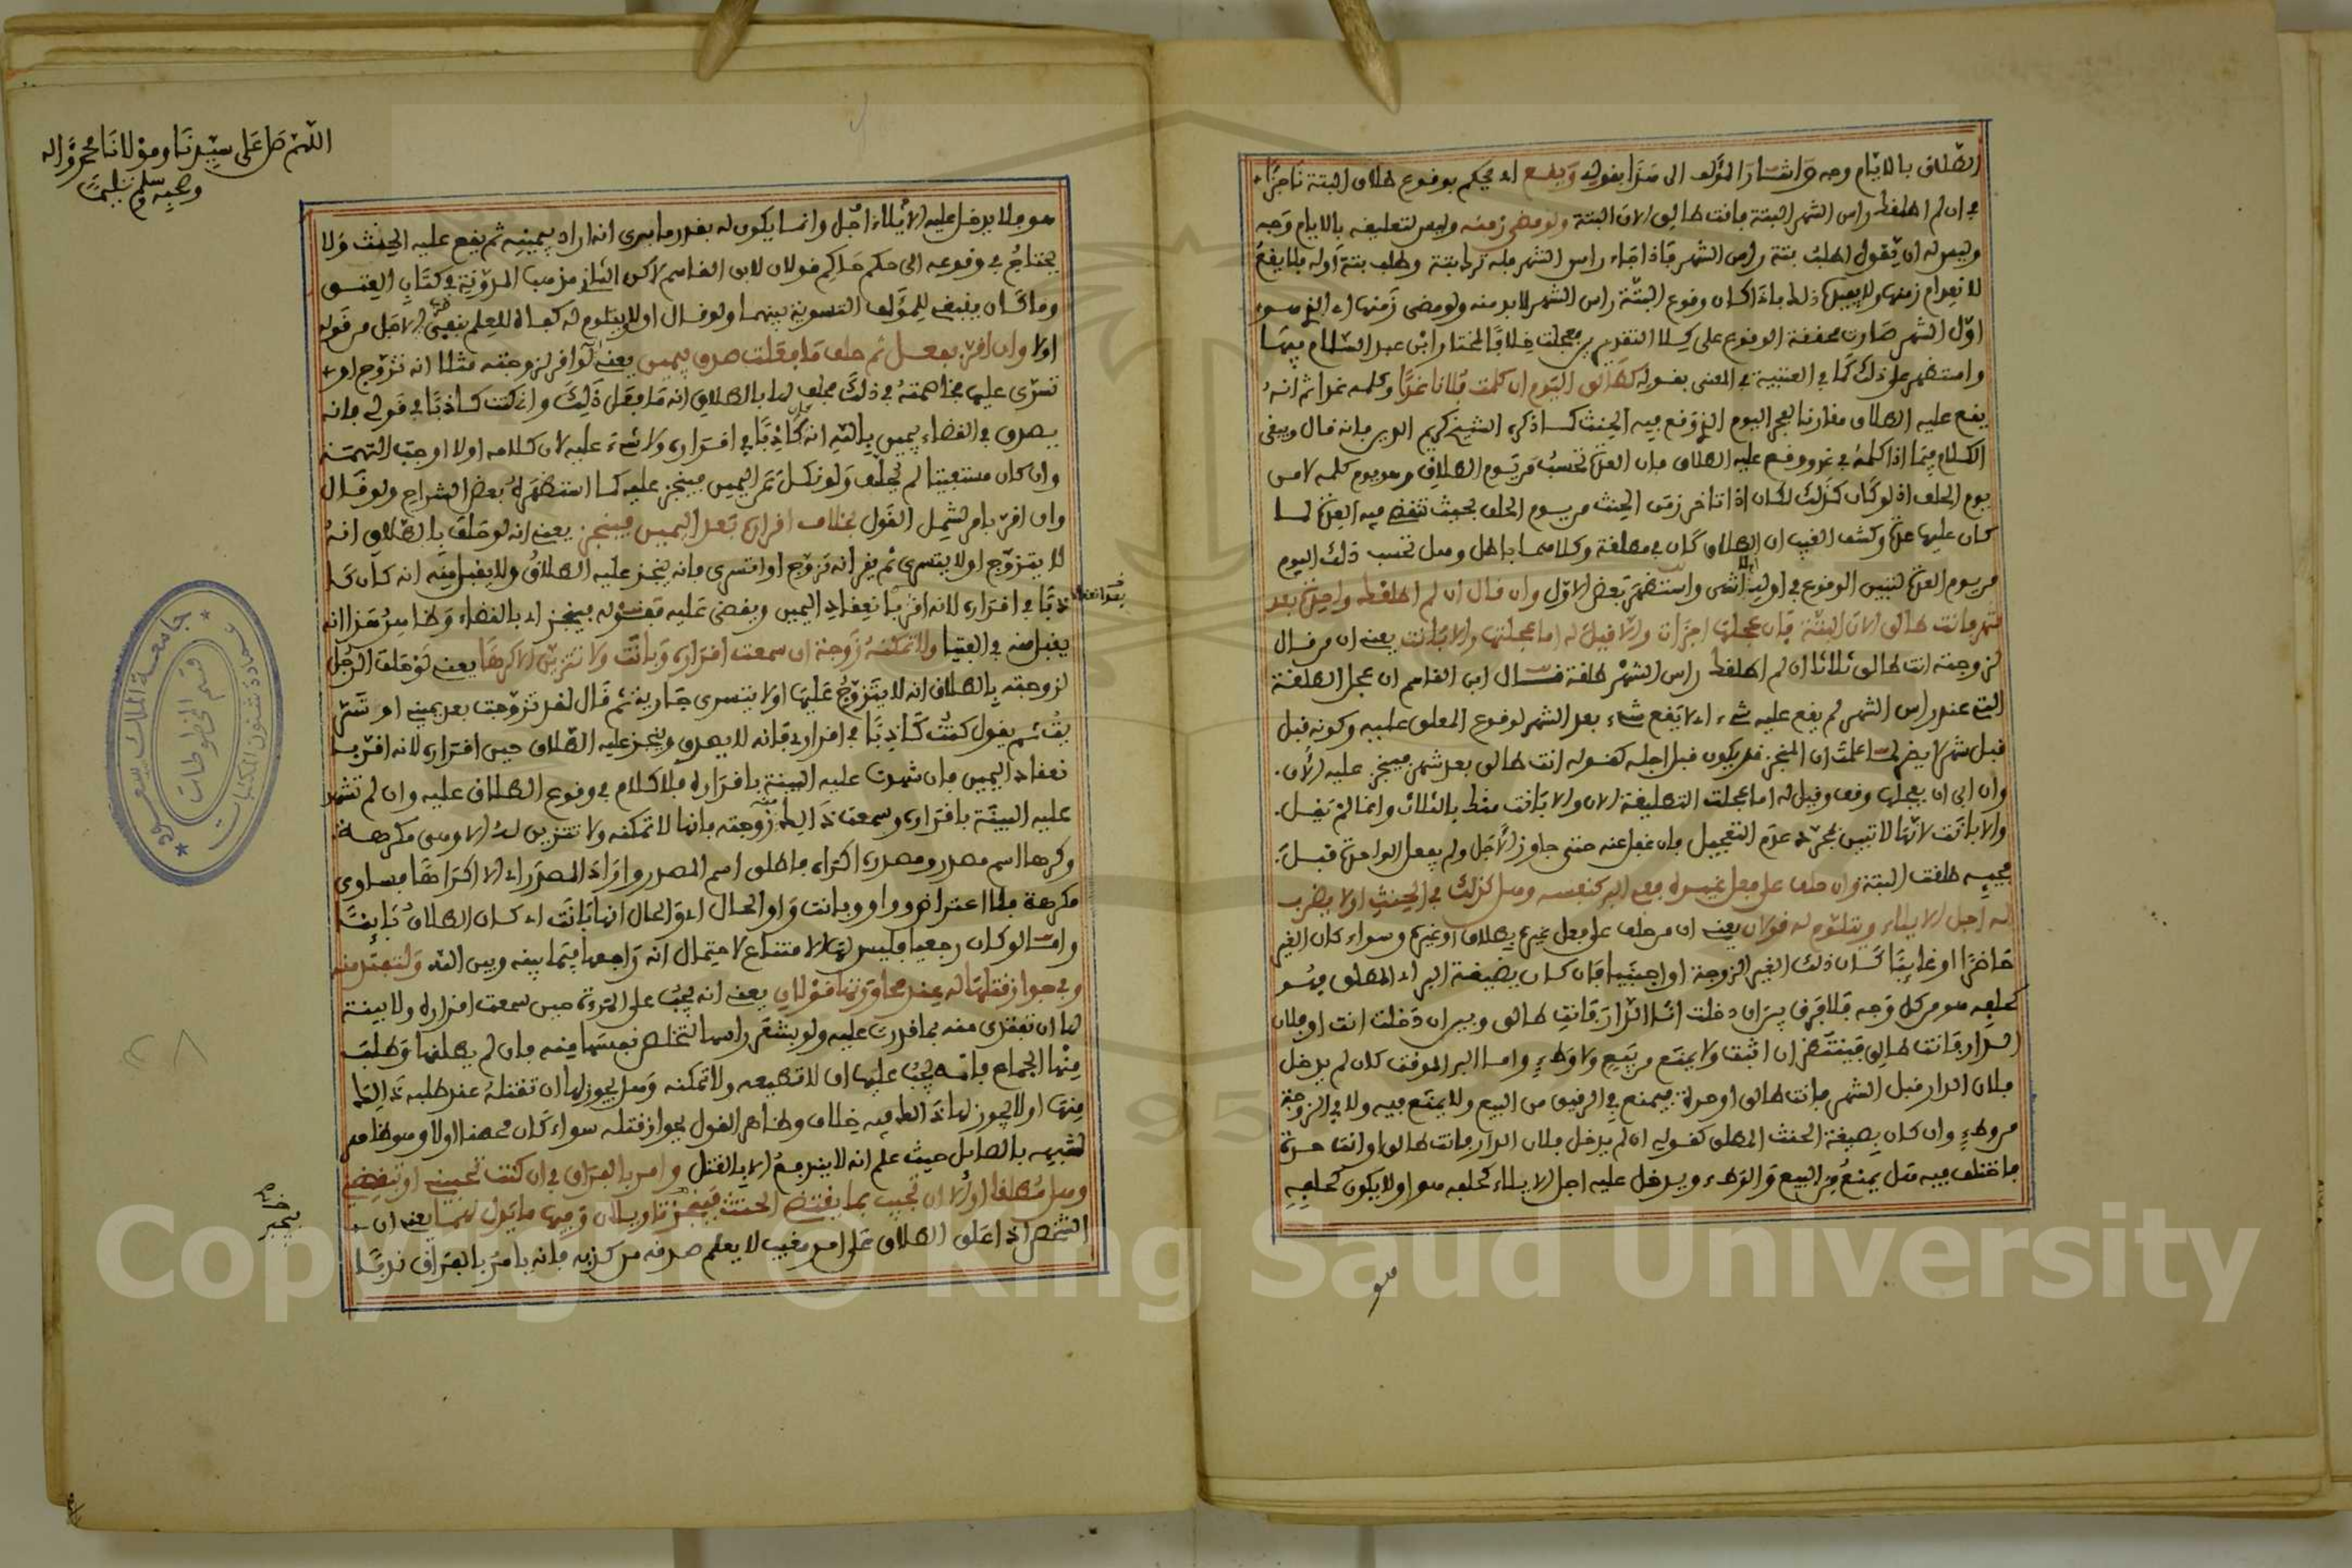 الطلاق بالايام وجه واشار المؤلف الى هذا بقوله ويقع اي يحكم بوقوع طلاق البتة ناجزا
في ان لم اطلقك راس الشهر البتة فانت طالق الان البتة ولو مضى زمنه وليس لتعليقه بالايام وجه
وليس له ان يقول اطلق بتة راس الشهر فاذا جاء راس الشهر فله ترك بتة وطلب بتة اوله فلا يقع
لانعدام زمنها ولا يعجل ذلك فاذا كان وقوع البتة راس الشهر لابد منه ولو مضى زمنها اي الذي هو
اول الشهر صارت محققة الوقوع على كلا التقديرين فعجلت خلافا لمختار ابن عبد السلام فيها
واستظهر على ذلك كما في العتبية في المعنى بقوله كطالق اليوم ان كلمت فلانا غدا وكلمه غدا ثم انه
يقع عليه الطلاق مقارنا لفجر اليوم الذي وقع فيه الحنث كما ذكره الشيخ كريم الدين فانه قال وبقي
الكلام فيما اذا كلمه في غد ووقع عليه الطلاق فان العدة تحسب من يوم الطلاق وهو يوم كلمه لا من
يوم الحلف اذ لو كان كذلك لكان اذا تاخر زمن الحنث من يوم الحلف بحيث تنقضي فيه العدة لما
كان عليها عدة وكشف الغيب ان الطلاق كان في مطلقة وكلاهما باطل وهل تحسب ذلك اليوم
من يوم العدة لتبين الوقوع في اوله انتهى واستظهر بعض الاول وان قال ان لم اطلقك واحدة بعد
شهر فانت طالق الان البتة فان عجلها اجزات والا قيل له اما عجلتها والا بانت يعني ان من قال
لزوجته انت طالق ثلاثا ان لم اطلقك راس الشهر طلقة قال ابن القاسم ان عجل الطلقة
التي عند راس الشهر لم يقع عليه شيء اي لا يقع شيء بعد الشهر لوقوع المعلق عليه وكونه قبل
قبل شهر لا يضر لما علمت ان المنجز قد يكون قبل اجله كقوله انت طالق بعد شهر فينجز عليه الان
وان ابى ان يعجلها وقف وقيل له اما عجلت التطليقة الان والا بانت منك بالثلاث وانما لم يقل
والا بانت لانها لا تبين بمجرد عدم التعجيل فان غفل عنه حتى جاوز الاجل ولم يفعل الواحدة قبل
مجيئه طلقت البتة وان حلف على فعل غيره ففي البر كنفسه وهل كذلك في الحنث او لا يضرب
له اجل الايلاء ويتلوم له قولان يعني ان من حلف على فعل غيره بطلاق او غيره وسواء كان الغير
حاضرا او غايبا كان ذلك الغير الزوجة او اجنبيا فان كان بصيغة البر اي المطلق فهو
كحلفه هو من كل وجه فلا فرق بين ان دخلت انا الدار فانت طالق وبين ان دخلت انت او فلان
الدار فانت طالق فينتظر ان اثبت ولا يمنع من بيع ولا وطء واما البر الموقت كان لم يدخل
فلان الدار قبل الشهر فانت طالق او حرة فيمنع في الرقيق من البيع ولا يمنع فيه ولا في الزوجة
من وطء وان كان بصيغة الحنث المطلق كقوله ان لم يدخل فلان الدار فانت طالق او انت حرة
فاختلف فيه هل يمنع من البيع والوطء ويدخل عليه اجل الايلاء كحلفه هو او لا يكون كحلفه
هو
اللهم صل على سيدنا ومولانا محمد واله
وصحبه وسلم تسليما
هو فلا يدخل عليه الايلاء اجل وانما يكون له بقدر ما يرى انه اراد بيمينه ثم يقع عليه الحنث ولا
يحتاج في وقوعه الى حكم حاكم قولان لابن القاسم لاكن الثاني مذهب المدونة في كتاب العتق
وما كان ينبغي للمؤلف التسوية بينهما ولو قال او لا يتلوم له كفاه للعلم بنفي الاجل من قوله
اولا وان اقر بفعل ثم حلف ما فعلت صدق بيمين يعني لو اقر لزوجته مثلا انه تزوج او
تسرى عليها فخاصمته في ذلك فحلف لها بالطلاق انه ما فعل ذلك وانه كنت كاذبا في قولي فانه
يصدق في القضاء بيمين بالله انه كان كاذبا في اقراره ولا شيء عليه لان كلامه اولا اوجب التهمة
وان كان مستفتيا لم يحلف ولو نكل عن اليمين فينجز عليه كما استظهره بعض الشراح ولو قال
وان اقر بامر لشمل القول بخلاف اقراره بعد اليمين فينجز يعني انه لو حلف بالطلاق انه
لا يتزوج او لا يتسرى ثم يقر انه تزوج او اتسرى فانه ينجز عليه الطلاق ولا يقبل منه انه كان كا
ذبا في اقراره لانه اقر بانعقاد اليمين ويقضى عليه فقوله فينجز اي بالقضاء وظاهر هذا انه
يقبل منه في الفتيا ولا تمكنه زوجة ان سمعت اقراره وبانت ولا تتزين الا كرها يعني لو حلف الرجل
لزوجته بالطلاق انه لا يتزوج عليها او لا يتسرى جارية ثم قال لقد تزوجت بعد يميني او تسر
يت ثم يقول كنت كاذبا في اقراري فانه لا يصدق وينجز عليه الطلاق حين اقراره لانه اقر با
نعقاد اليمين فان شهدت عليه البينة باقراره فلا كلام في وقوع الطلاق عليه وان لم تشهد
عليه البينة باقراره وسمعت ذلك منه زوجته فانها لا تمكنه ولا تتزين له الا وهي مكرهة
وكرها اسم مصدر ومصدره اكراه فاطلق اسم المصدر واراد المصدر اي الا اكراها فساوى
مكرهة فلا اعتراض وواو وبانت واو الحال اي والحال انها بانت اي كان الطلاق باينا
واما لو كان رجعيا فليس لها الامتناع لاحتمال انه راجعها فيما بينه وبين الله ولتفتد منه
وفي جواز قتلها له عند محاورتها قولان يعني انه يجب على المرءة حين سمعت اقراره ولا بينة
لها ان تفتدي منه بما قدرت عليه ولو بشعر راسها لتخلص نفسها منه فان لم يطلقها وطلب
منها الجماع فانه يجب عليها ان لا تطيعه ولا تمكنه وهل يجوز لها ان تقتله عند طلبه ذلك
منها او لا يجوز لها ذلك فيه خلاف وظاهر القول بجواز قتله سواء كان محصنا اولا وهو ظاهر
لشبهه بالصايل حيث علم انه لا يندفع الا بالقتل وامر بالفراق في ان كنت تحبيني او تبغضيني
وهل مطلقا او الا ان تجيب بما يقتضي الحنث فينجز تاويلان وفيها ما يدل لهما يعني ان
الشخص اذا علق الطلاق على امر مغيب لا يعلم صدقه من كذبه فانه يامر بالفراق ندبا
جامعة الملك سعود
عمادة شئون المكتبات
قسم المخطوطات
Copyright © King Saud University